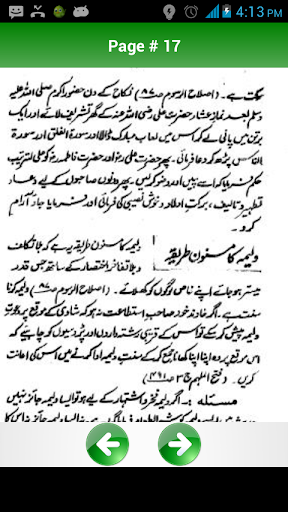 4:13 PM
Page # 17
سکت ہے۔ (اصلاح الرسوم ص۸۷) نکاح کے دن حضور اکرم صلی اللہ علیہ
وسلم بعد نماز عشاء حضرت علی رضی اللہ عنہ کے گھر تشریف لائے اور ایک
برتن میں پانی لے کر اس میں لعاب مبارک ڈالا اور سورۃ الفلق اور سورۃ
الناس پڑھ کر دعا فرمائی۔ پھر حضرت علی رض اور حضرت فاطمہ رض کو علی الترتیب
حکم فرمایا کہ اسے پئیں اور وضو کر لیں۔ پھر دونوں صاحبوں کے لیے دعاء
تطہیر و تالیف، برکت اولاد و خوش نصیبی کی فرمائی اور فرمایا جاؤ آرام
کرو۔
ولیمہ کا مسنون طریقہ
ولیمہ کا مسنون طریقہ یہ ہے کہ بلا تکلف
و بلا تفاخر اختصار کے ساتھ جس قدر
میسر ہو جائے اپنے خاص لوگوں کو کھلا دے۔ (اصلاح الرسوم ص۸۷) ولیمہ کرنا
سنت ہے۔ اگر خاوند خود صاحب استطاعت نہ ہو کہ شادی کے موقع پر دعوت
ولیمہ پیش کر سکے تو اس کے قریبی رشتہ داروں اور پڑوسیوں کو چاہیے کہ
اس موقع پر وہ اپنا اپنا کھانا جمع کر کے سنت ولیمہ ادا کرنے میں اس کی اعانت
کریں۔ (فتح الملہم ج۳ ص۴۹۱)
مسئلہ:۔ اگر ولیمہ فخر و اشتہار کے لیے ہو تو ایسا ولیمہ جائز نہیں